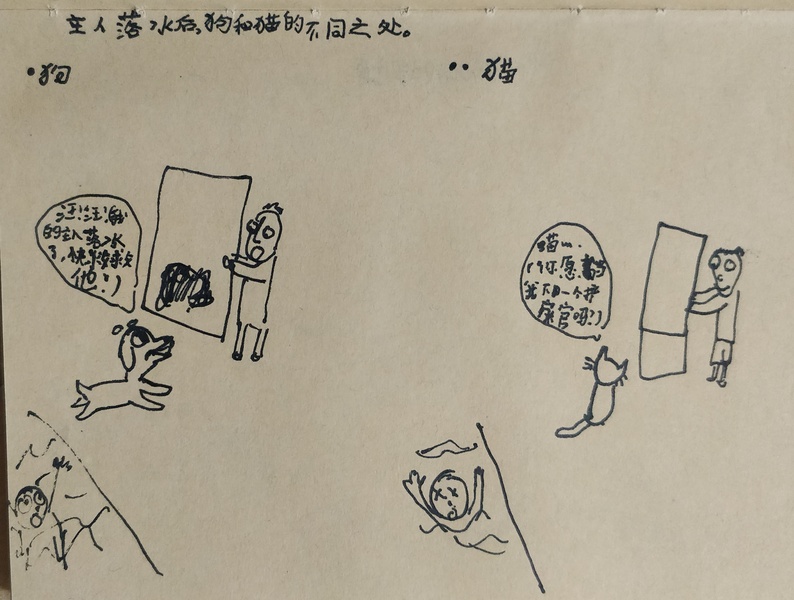 主人落水后,狗和猫的不同之处。
•狗
•• 猫
汪!汪!我
的主人落水
了,快来救
他!)
喵…
(你愿当
我下一个护
尿官吗?)